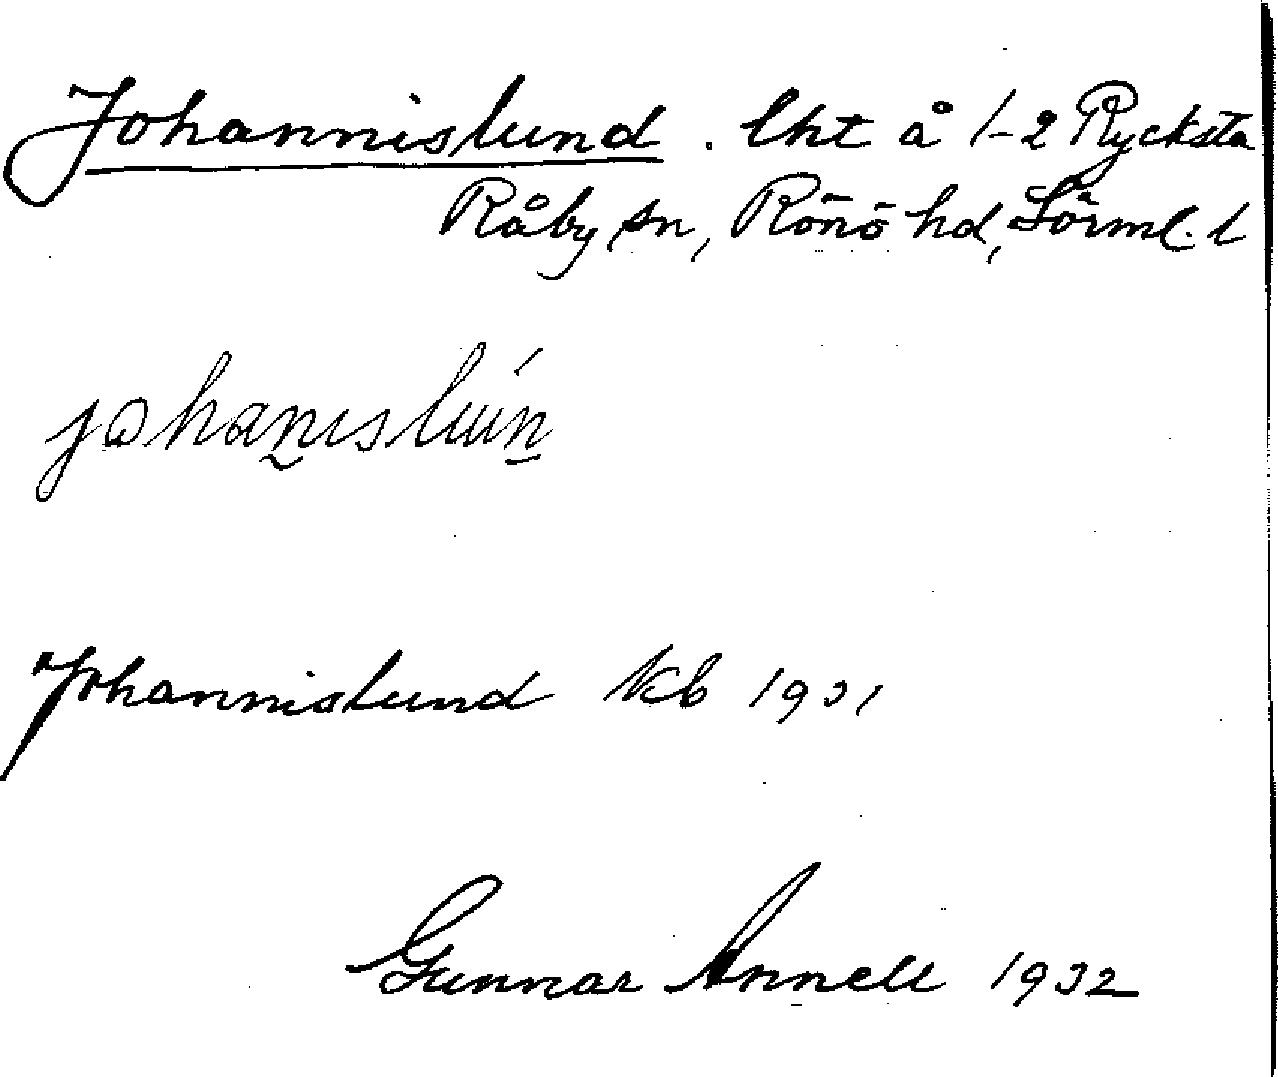 Johannislund. lht å 1-2 Rycksta
Råby sn, Rönö hd, Sörml. l
johanisluń
Johannislund kb 1931
Gunnar Annell 1932